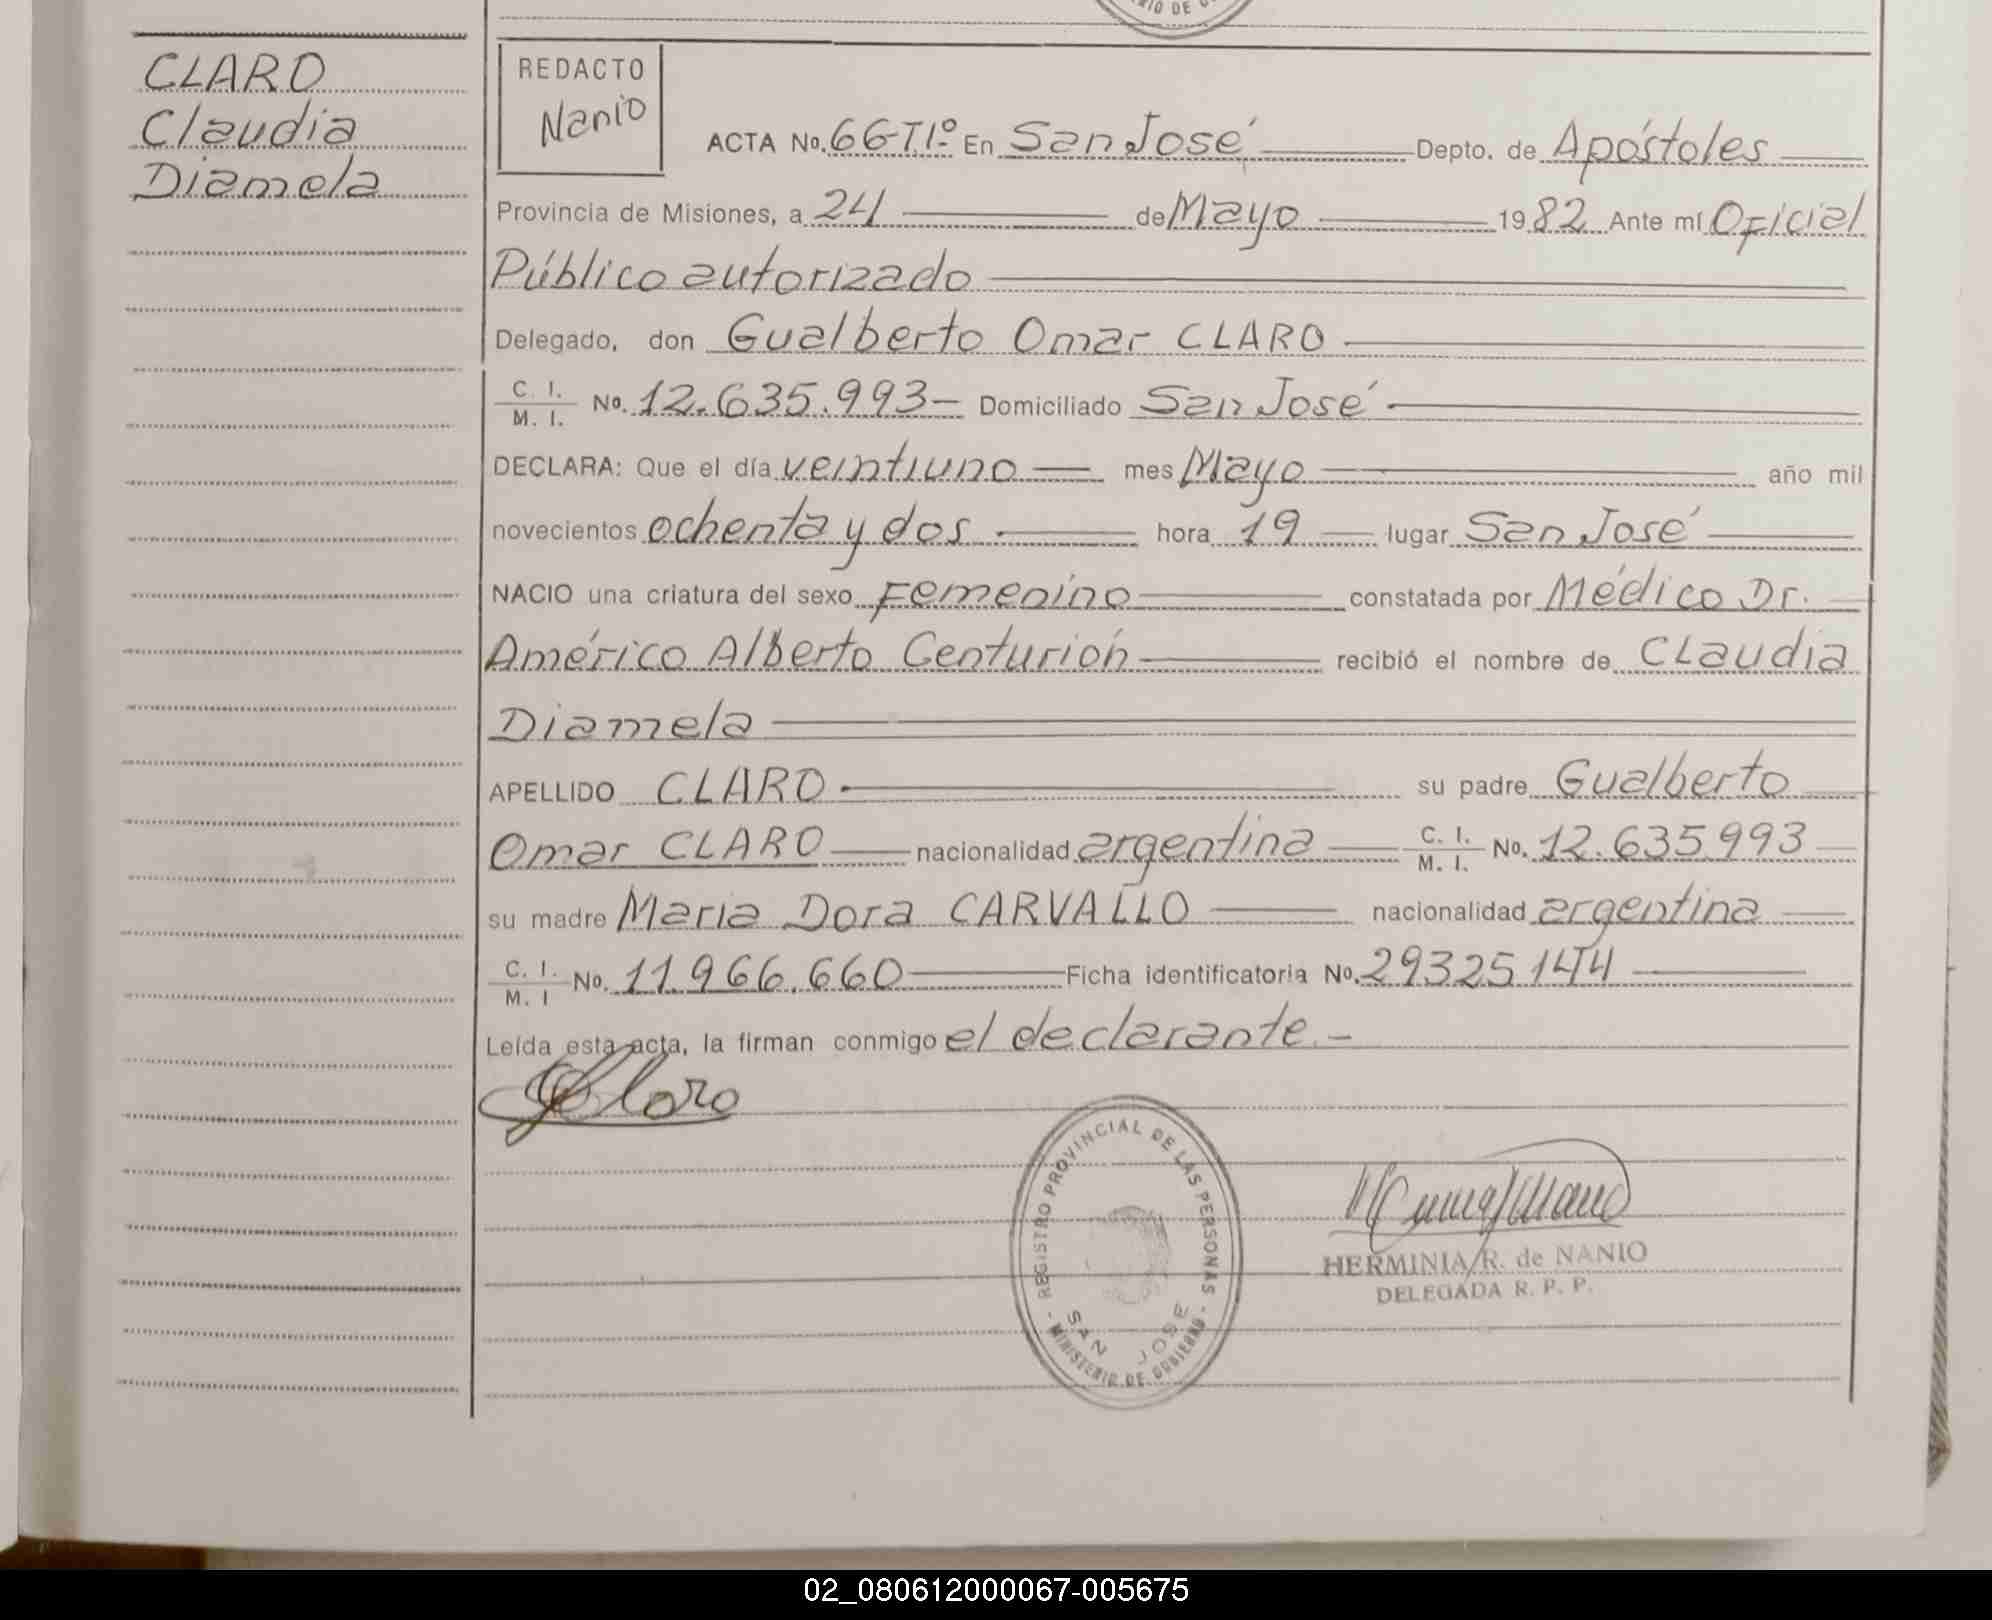 CLARO
Claudia
Diamela
REDACTO
Nanio
ACTA No. 66-T1º En San José Depto. de Apóstoles
Provincia de Misiones, a 24 de Mayo 1982 Ante mí Oficial
Público autorizado
Delegado, don Gualberto Omar CLARO
C. I. / M. I. No. 12.635.993- Domiciliado San José
DECLARA: Que el día veintiuno mes Mayo año mil
novecientos ochenta y dos hora 19 lugar San José
NACIO una criatura del sexo Femenino constatada por Médico Dr.
Américo Alberto Centurión recibió el nombre de Claudia
Diamela
APELLIDO CLARO su padre Gualberto
Omar CLARO nacionalidad argentina C. I. / M. I. No. 12.635.993
su madre Maria Dora CARVALLO nacionalidad argentina
C. I. / M. I No. 11.966.660 Ficha identificatoria No. 29325144
Leída esta acta, la firman conmigo el declarante.-
Claro
REGISTRO PROVINCIAL DE LAS PERSONAS
SAN JOSE
MINISTERIO DE GOBIERNO
HERMINIA R. de NANIO
DELEGADA R. P. P.
02_080612000067-005675